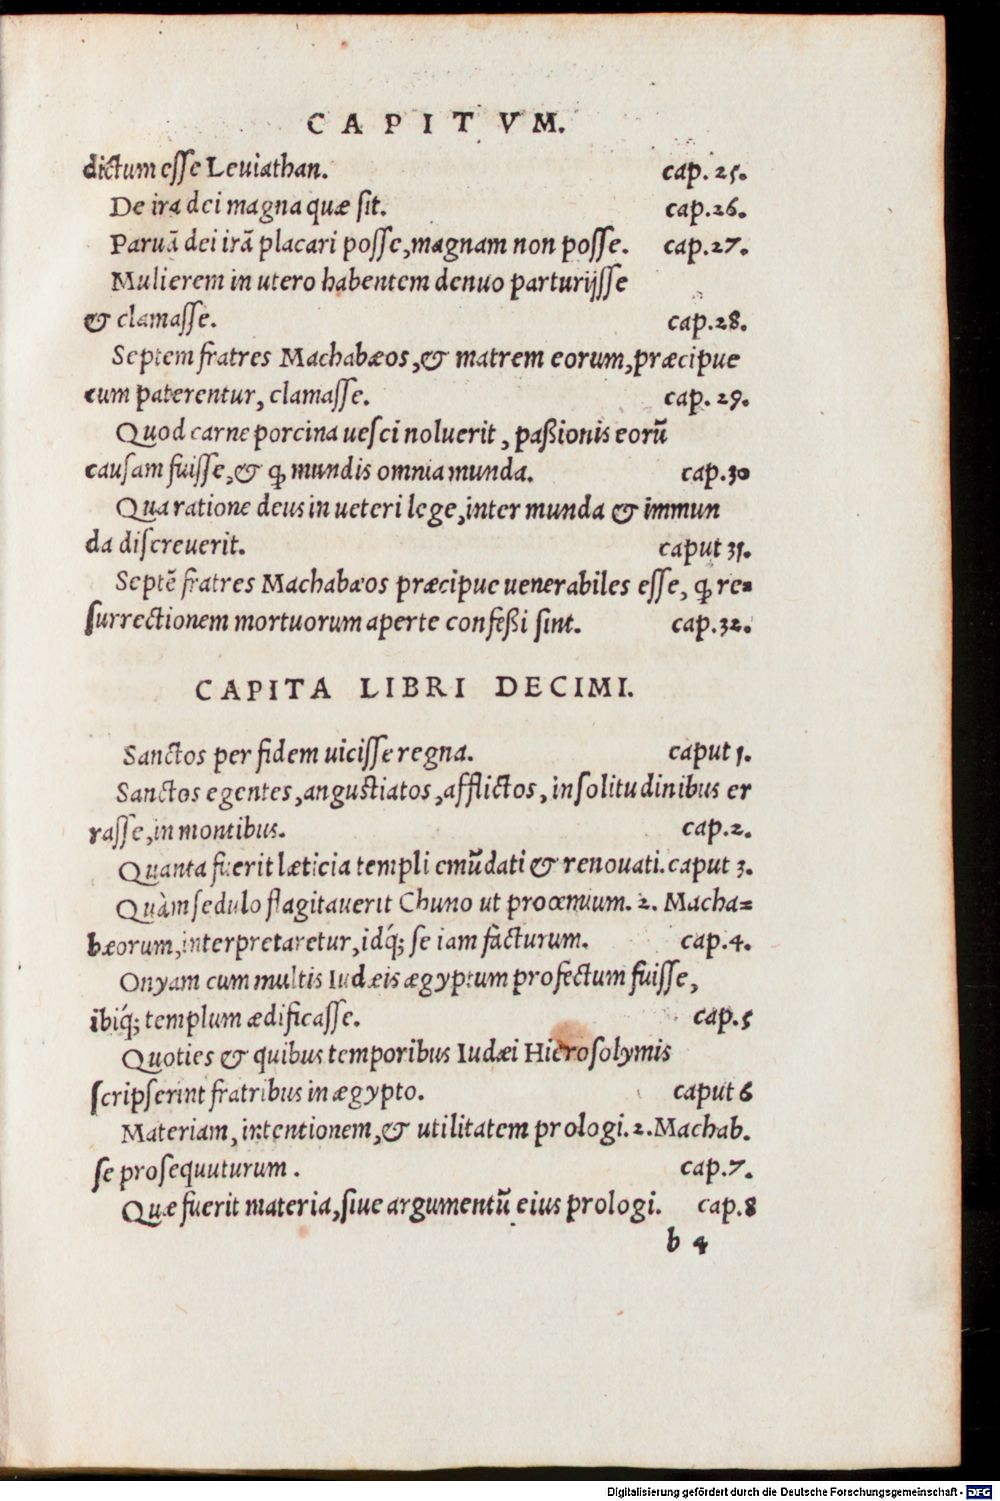 CAPITVM.
dictum esse Leuiathan. cap. 25.
De ira dei magna quæ sit. cap.26.
Paruā dei irā placari posse, magnam non posse. cap.27.
Mulierem in utero habentem denuo parturijsse
& clamasse. cap.28.
Septem fratres Machabæos, & matrem eorum, præcipue
cum paterentur, clamasse. cap. 29.
Quod carne porcina uesci noluerit, paßionis eorū
causam fuisse, & ꝙ mundis omnia munda. cap.30
Qua ratione deus in ueteri lege, inter munda & immun
da discreuerit. caput 31.
Septē fratres Machabæos præcipue uenerabiles esse, ꝙ re=
surrectionem mortuorum aperte confeßi sint. cap.32.
CAPITA LIBRI DECIMI.
Sanctos per fidem uicisse regna. caput 1.
Sanctos egentes, angustiatos, afflictos, in solitudinibus er
rasse, in montibus. cap.2.
Quanta fuerit læticia templi emūdati & renouati. caput 3.
Quàm sedulo flagitauerit Chuno ut proœmium. 2. Macha=
bæorum, interpretaretur, idq́; se iam facturum. cap.4.
Onyam cum multis Iudæis ægyptum profectum fuisse,
ibiq́; templum ædificasse. cap.5
Quoties & quibus temporibus Iudæi Hierosolymis
scripserint fratribus in ægypto. caput 6
Materiam, intentionem, & utilitatem prologi. 2. Machab.
se prosequuturum. cap.7.
Quæ fuerit materia, siue argumentū eius prologi. cap.8
b 4
Digitalisierung gefördert durch die Deutsche Forschungsgemeinschaft - DFG